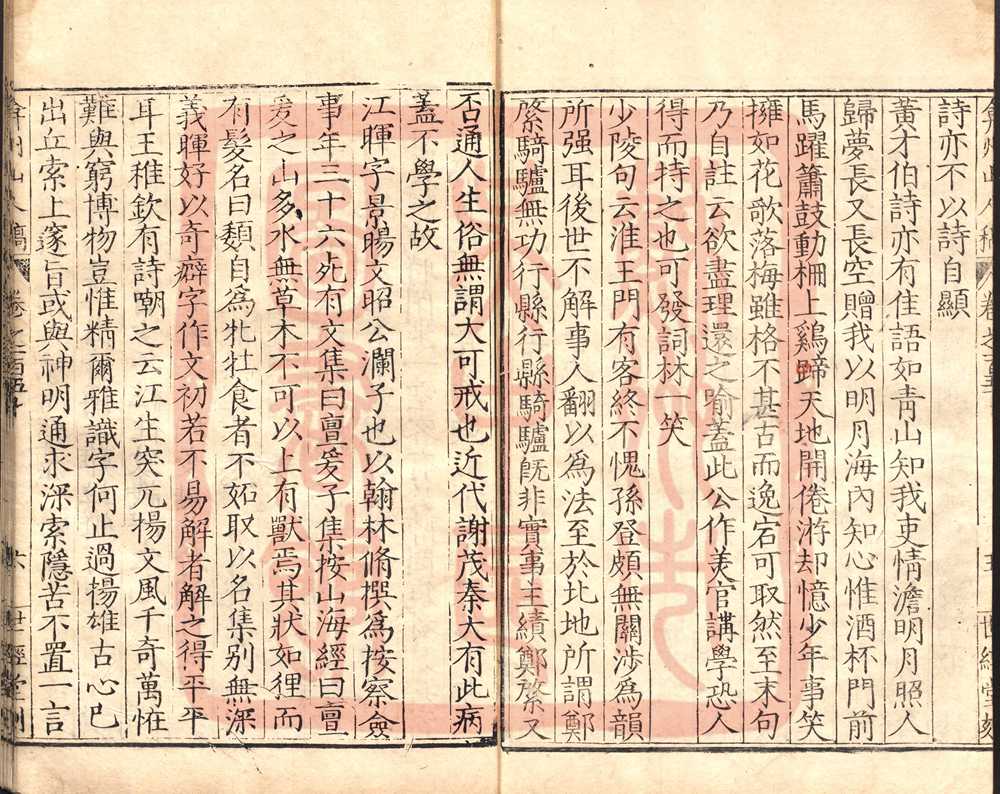 詩亦不以詩自顯
黃才伯詩亦有佳語如青山知我吏情澹明月照人
歸夢長又長空贈我以明月海內知心惟酒杯門前
馬躍簫鼓動柵上鷄蹄天地開倦游却憶少年事笑
擁如花歌落梅雖格不甚古而逸宕可取然至末句
乃自註云欲盡理還之喻蓋此公作美官講學恐人
得而持之也可發詞林一笑
少陵句云淮王門有客終不愧孫登頗無關涉為韻
所强耳後世不解事人翻以為法至於北地所謂鄭
綮騎驢無功行縣行縣騎驢旣非實事王績鄭綮又
否通人生俗無謂大可戒也近代謝茂秦大有此病
蓋不學之故
江暉字景暘文昭公瀾子也以翰林脩撰為按察僉
事年三十六死有文集曰亶爰子集按山海經曰亶
爰之山多水無草木不可以上有獸焉其狀如狸而
有髮名曰類自為牝牡食者不妬取以名集別無深
義暉好以奇癖字作文初若不易解者解之得平平
耳王稚欽有詩嘲之云江生突兀揚文風千奇萬恠
難與窮博物豈惟精爾雅識字何止過揚雄古心已
出丘索上邃旨或與神明通求深索隱苦不置一言
卷之一百五十 六 世經堂刻